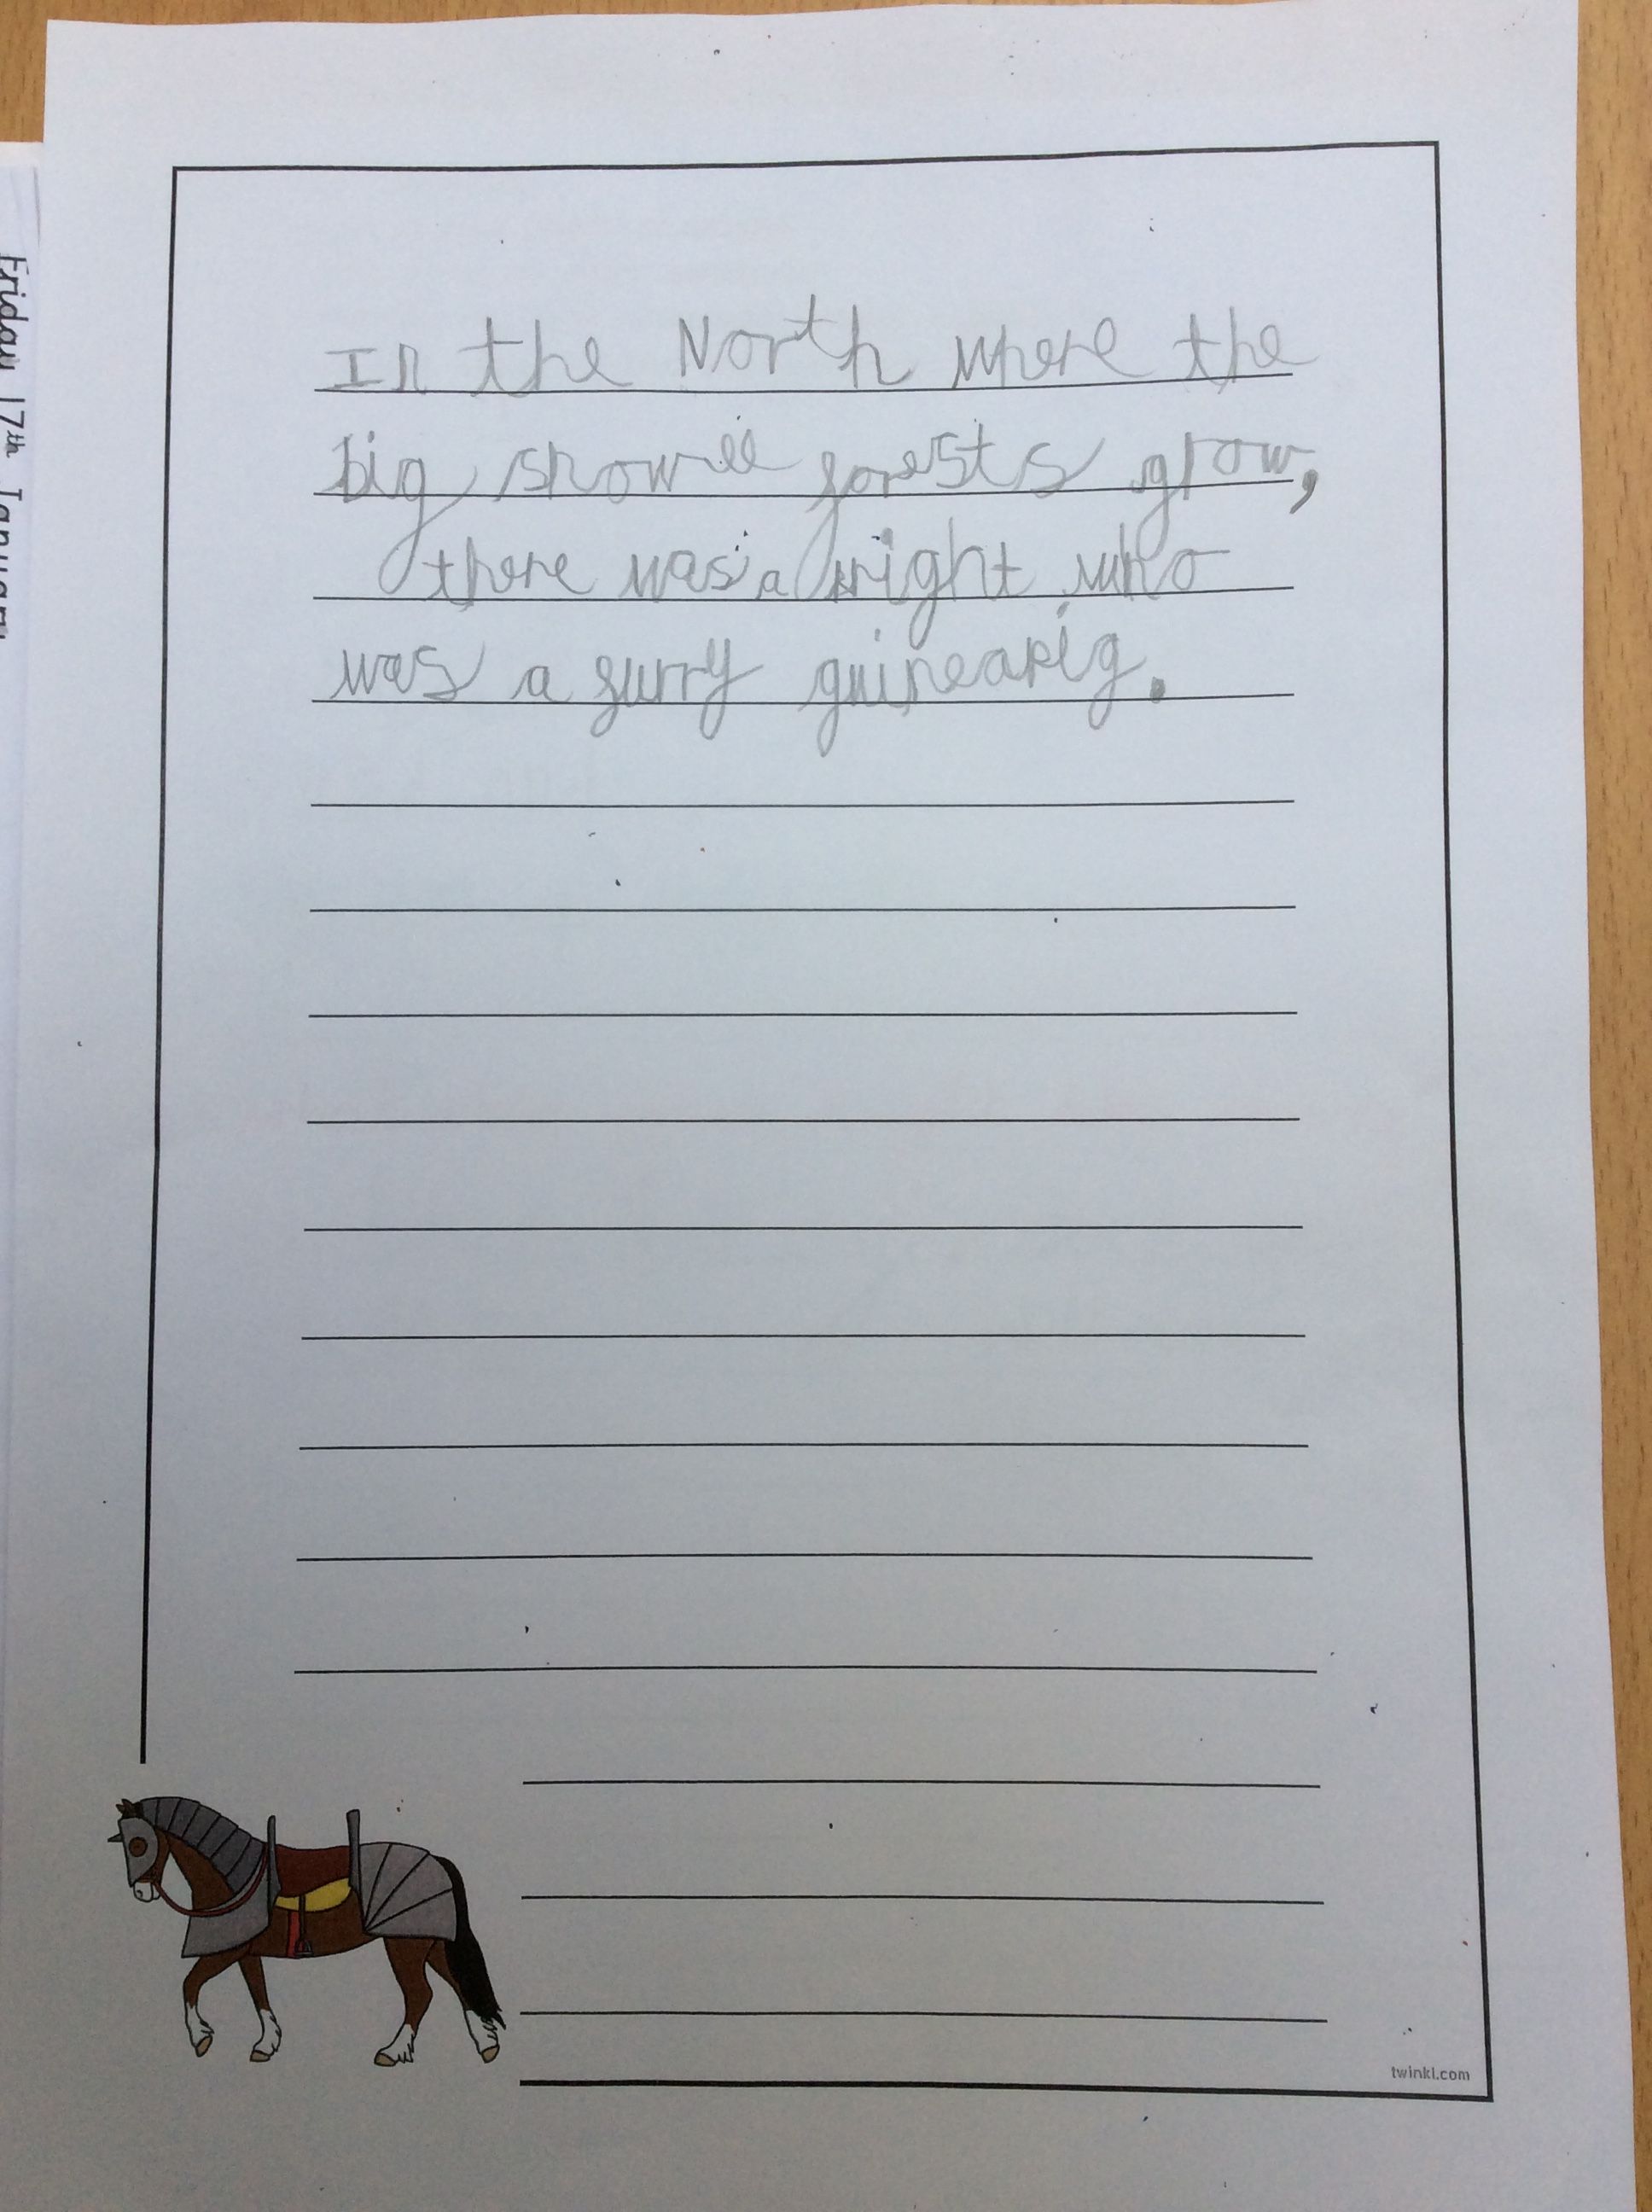 In the North where the
big snowee forests grow,
there was a knight who
was a furry guineapig.
Friday 17th January
twinkl.com